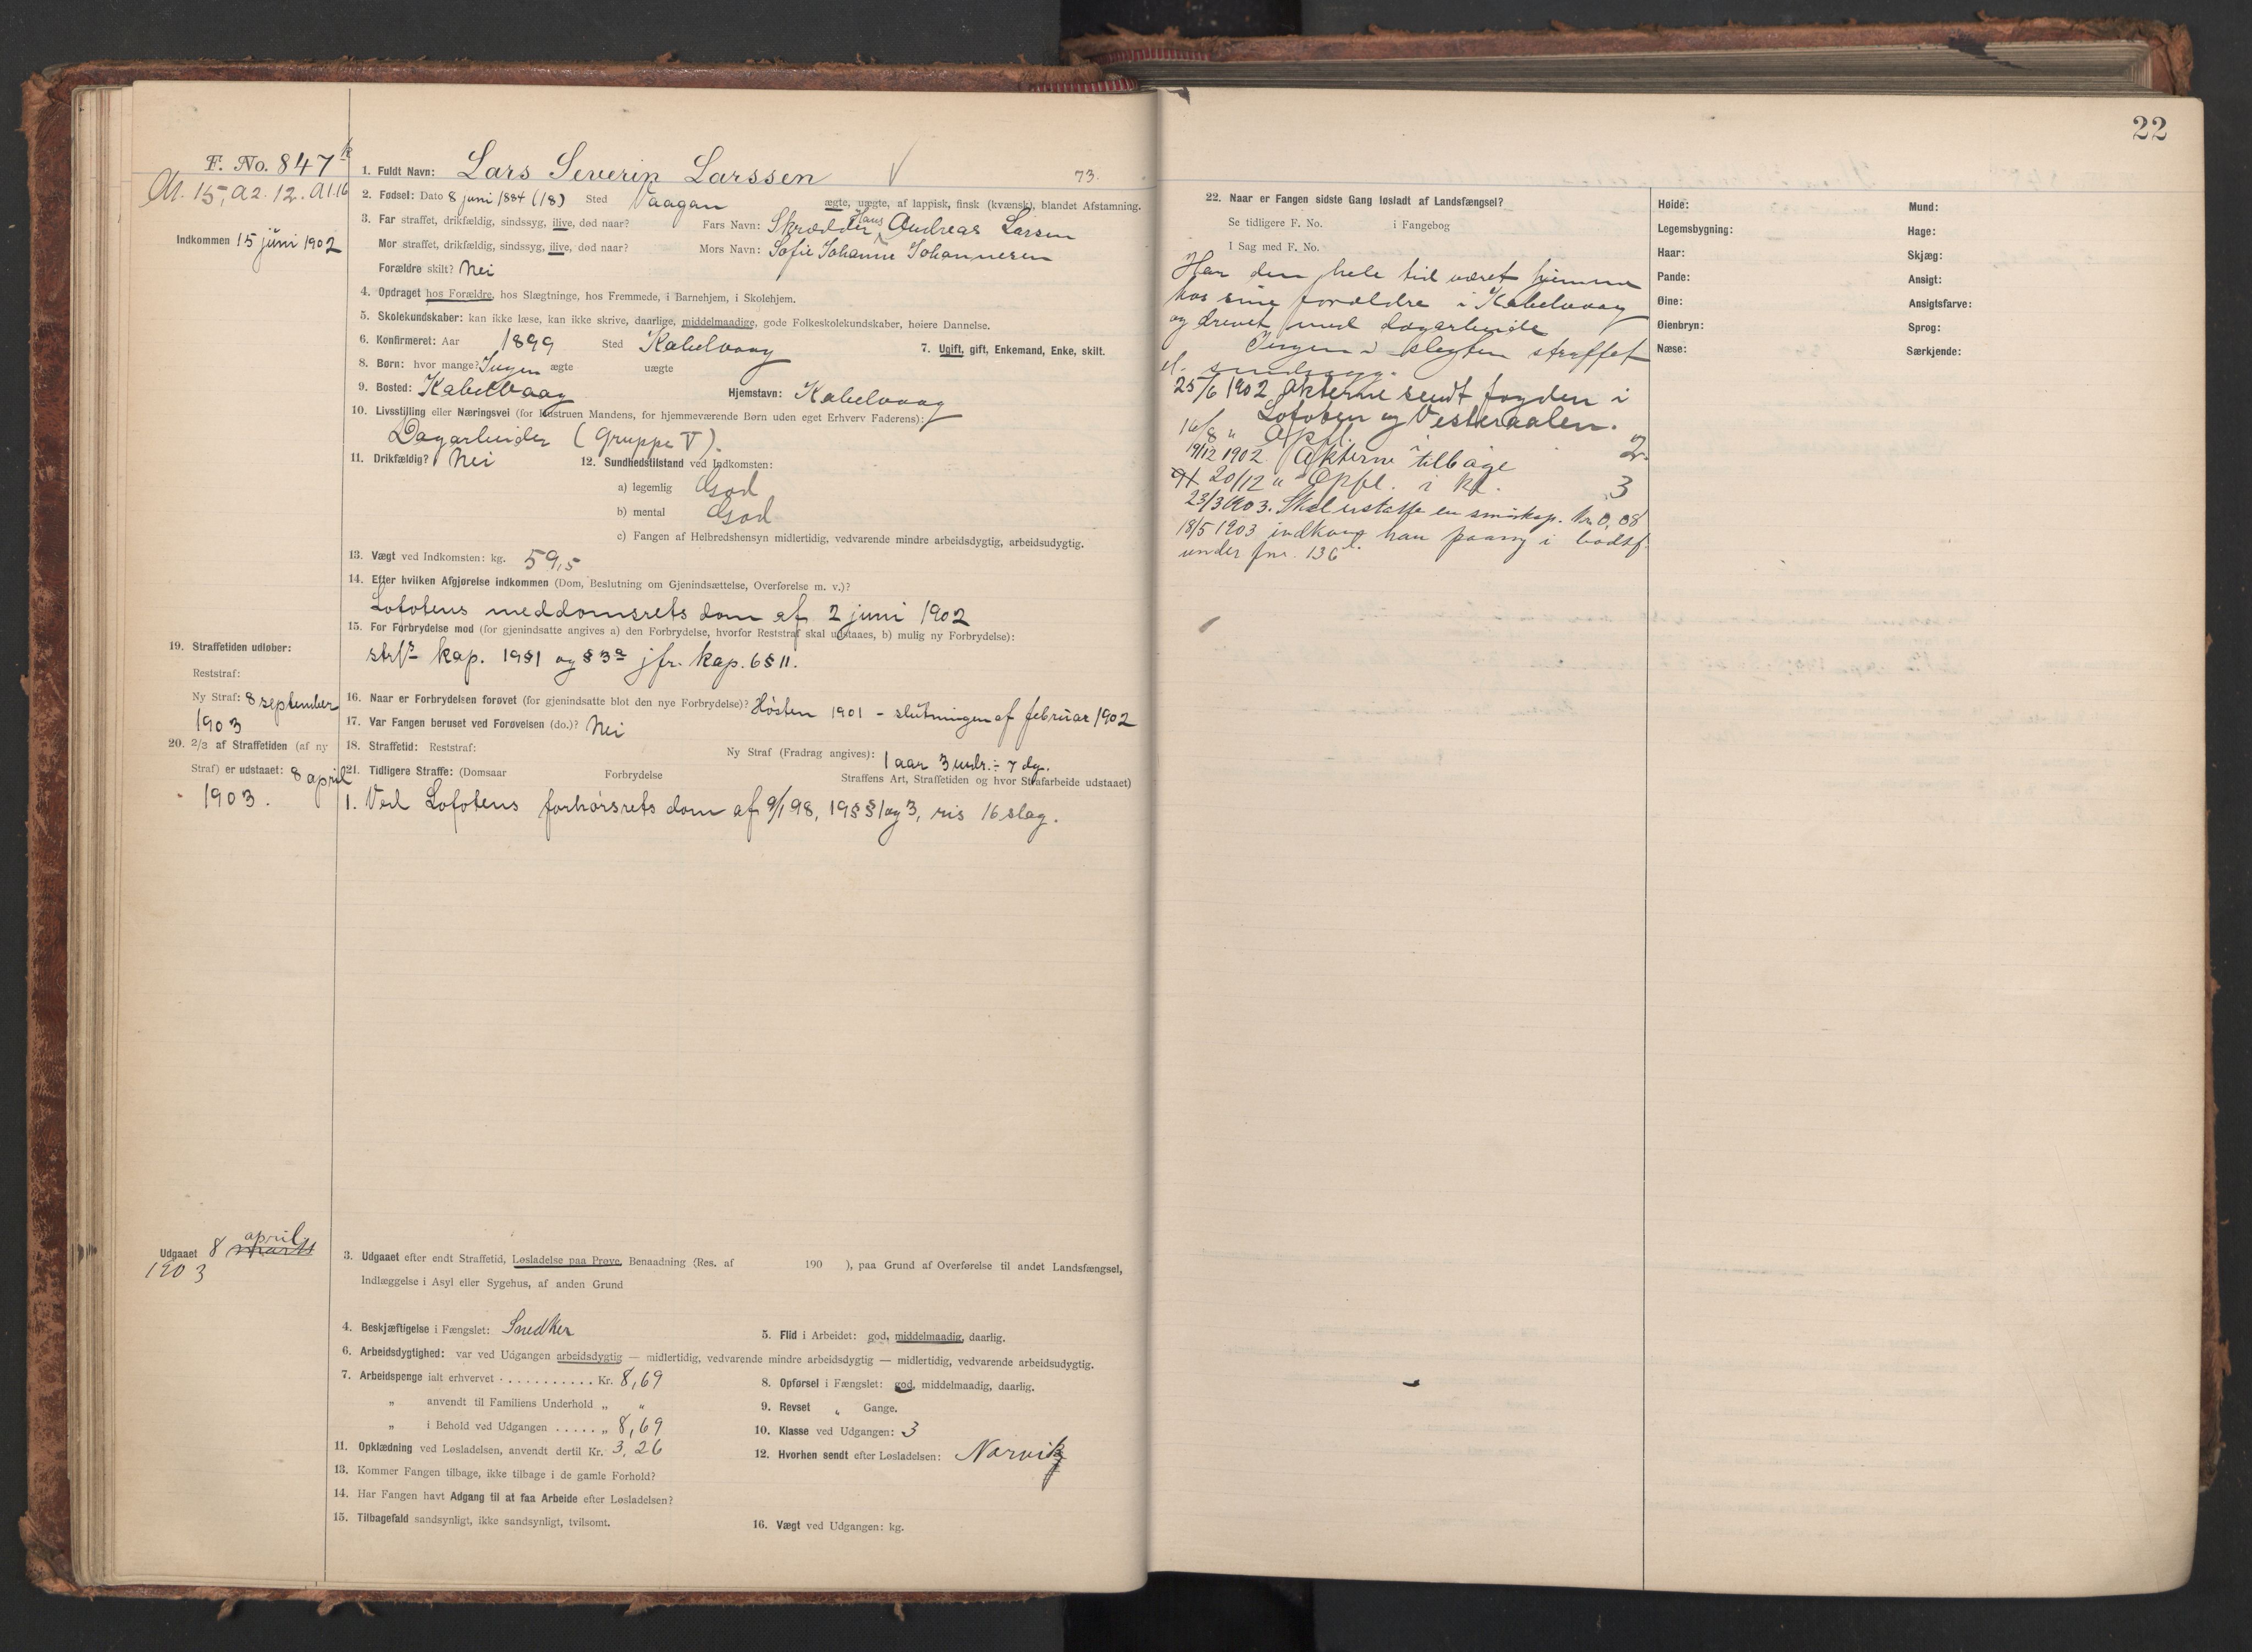 22
F. No. 847 k
A1. 15, A2. 12. A1.16
Indkommen 15 juni 1902
1. Fuldt Navn: Lars Severin Larssen
73.
2. Fødsel: Dato 8 juni 1884 (18) Sted Vaagan ægte, uægte, af lappisk, finsk (kvænsk), blandet Afstamning.
3. Far straffet, drikfældig, sindssyg, ilive, død naar? Fars Navn: Skrædder Hans Andreas Larsen
Mor straffet, drikfældig, sindssyg, ilive, død naar? Mors Navn: Sofie Johanne Johannesen
Forældre skilt? Nei
4. Opdraget hos Forældre, hos Slægtninge, hos Fremmede, i Barnehjem, i Skolehjem.
5. Skolekundskaber: kan ikke læse, kan ikke skrive, daarlige, middelmaadige, gode Folkeskolekundskaber, høiere Dannelse.
6. Konfirmeret: Aar 1899 Sted Kabelvaag 7. Ugift, gift, Enkemand, Enke, skilt.
8. Børn: hvor mange? Ingen ægte uægte
9. Bosted: Kabelvaag Hjemstavn: Kabelvaag
10. Livsstilling eller Næringsvei (for Hustruen Mandens, for hjemmeværende Børn uden eget Erhverv Faderens):
Dagarbeider (Gruppe V).
11. Drikfældig? Nei 12. Sundhedstilstand ved Indkomsten:
a) legemlig God
b) mental God
c) Fangen af Helbredshensyn midlertidig, vedvarende mindre arbeidsdygtig, arbeidsudygtig.
13. Vægt ved Indkomsten: kg. 59,5
14. Efter hvilken Afgjørelse indkommen (Dom, Beslutning om Gjenindsættelse, Overførelse m. v.)?
Lofotens meddomsrets dom af 2 juni 1902
15. For Forbrydelse mod (for gjenindsatte angives a) den Forbrydelse, hvorfor Reststraf skal udstaaes, b) mulig ny Forbrydelse):
kap. 19§1 og §3a jfr. kap. 6§11.
19. Straffetiden udløber:
Reststraf:
Ny Straf: 8 september
1903
16. Naar er Forbrydelsen forøvet (for gjenindsatte blot den nye Forbrydelse)? Høsten 1901 - slutningen af februar 1902
17. Var Fangen beruset ved Forøvelsen (do.)? Nei
20. 2/3 af Straffetiden (af ny
Straf) er udstaaet: 8 april
1903.
18. Straffetid: Reststraf: Ny Straf (Fradrag angives): 1 aar 3 mdr. ÷ 7 dg.
21. Tidligere Straffe: (Domsaar Forbrydelse Straffens Art, Straffetiden og hvor Strafarbeide udstaaet)
1. Ved Lofotens forhørsrets dom af 9/1 98, 19§§1 og 3, ris 16 slag.
Udgaaet 8 april
marts
1903
3. Udgaaet efter endt Straffetid, Løsladelse paa Prøve, Benaadning (Res. af 190 ), paa Grund af Overførelse til andet Landsfængsel,
Indlæggelse i Asyl eller Sygehus, af anden Grund
4. Beskjæftigelse i Fængslet: Snedker 5. Flid i Arbeidet: god, middelmaadig, daarlig.
6. Arbeidsdygtighed: var ved Udgangen arbeidsdygtig — midlertidig, vedvarende mindre arbeidsdygtig — midlertidig, vedvarende arbeidsudygtig.
7. Arbeidspenge ialt erhvervet . . . . . . . . . . . Kr. 8,69 8. Opførsel i Fængslet: god, middelmaadig, daarlig.
„ anvendt til Familiens Underhold „ „ 9. Revset „ Gange.
„ i Behold ved Udgangen . . . . . „ 8,69 10. Klasse ved Udgangen: 3
11. Opklædning ved Løsladelsen, anvendt dertil Kr. 3,26 12. Hvorhen sendt efter Løsladelsen: Narvik
13. Kommer Fangen tilbage, ikke tilbage i de gamle Forhold?
14. Har Fangen havt Adgang til at faa Arbeide efter Løsladelsen?
15. Tilbagefald sandsynligt, ikke sandsynligt, tvilsomt. 16. Vægt ved Udgangen: kg.
22. Naar er Fangen sidste Gang løsladt af Landsfængsel?
Se tidligere F. No. i Fangebog
I Sag med F. No.
Har den hele tid været hjemme
hos sine forældre i Kabelvaag
og drevet med dagarbeide
Ingen i slegten straffet
el. sindssyg.
25/6 1902 Akterne sendt fogden i
Lofoten og Vesteraalen.
16/8 „ Opfl. i 2.
19/12 1902 Akterne tilbage
20/12 „ Opfl. i kl. 3
23/3 1903. Skal erstatte en Kr. 0,08
18/5 1903 indkom han paany i bodsf.
under fnr. 136
Høide:
Legemsbygning:
Haar:
Pande:
Øine:
Øienbryn:
Næse:
Mund:
Hage:
Skjæg:
Ansigt:
Ansigtsfarve:
Sprog:
Særkjende: